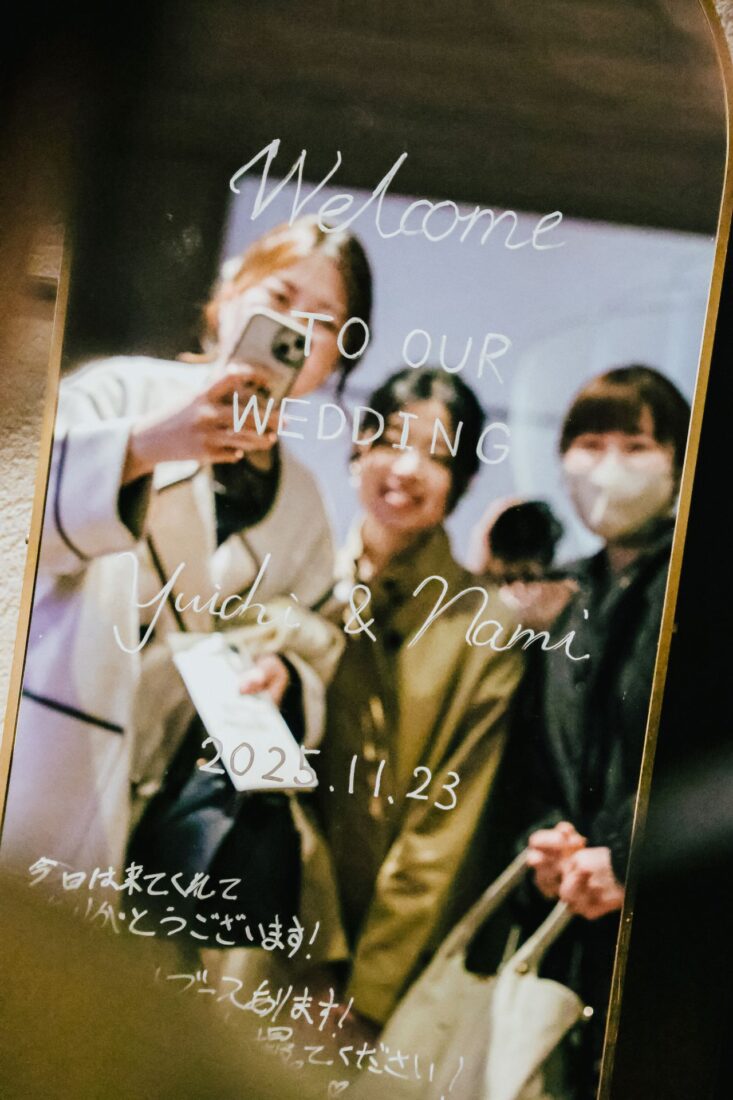 Welcome
TO OUR
WEDDING
Yuichi & Nami
2025.11.23
今日は来てくれて
がとうございます!
ブースあります!
ってください!